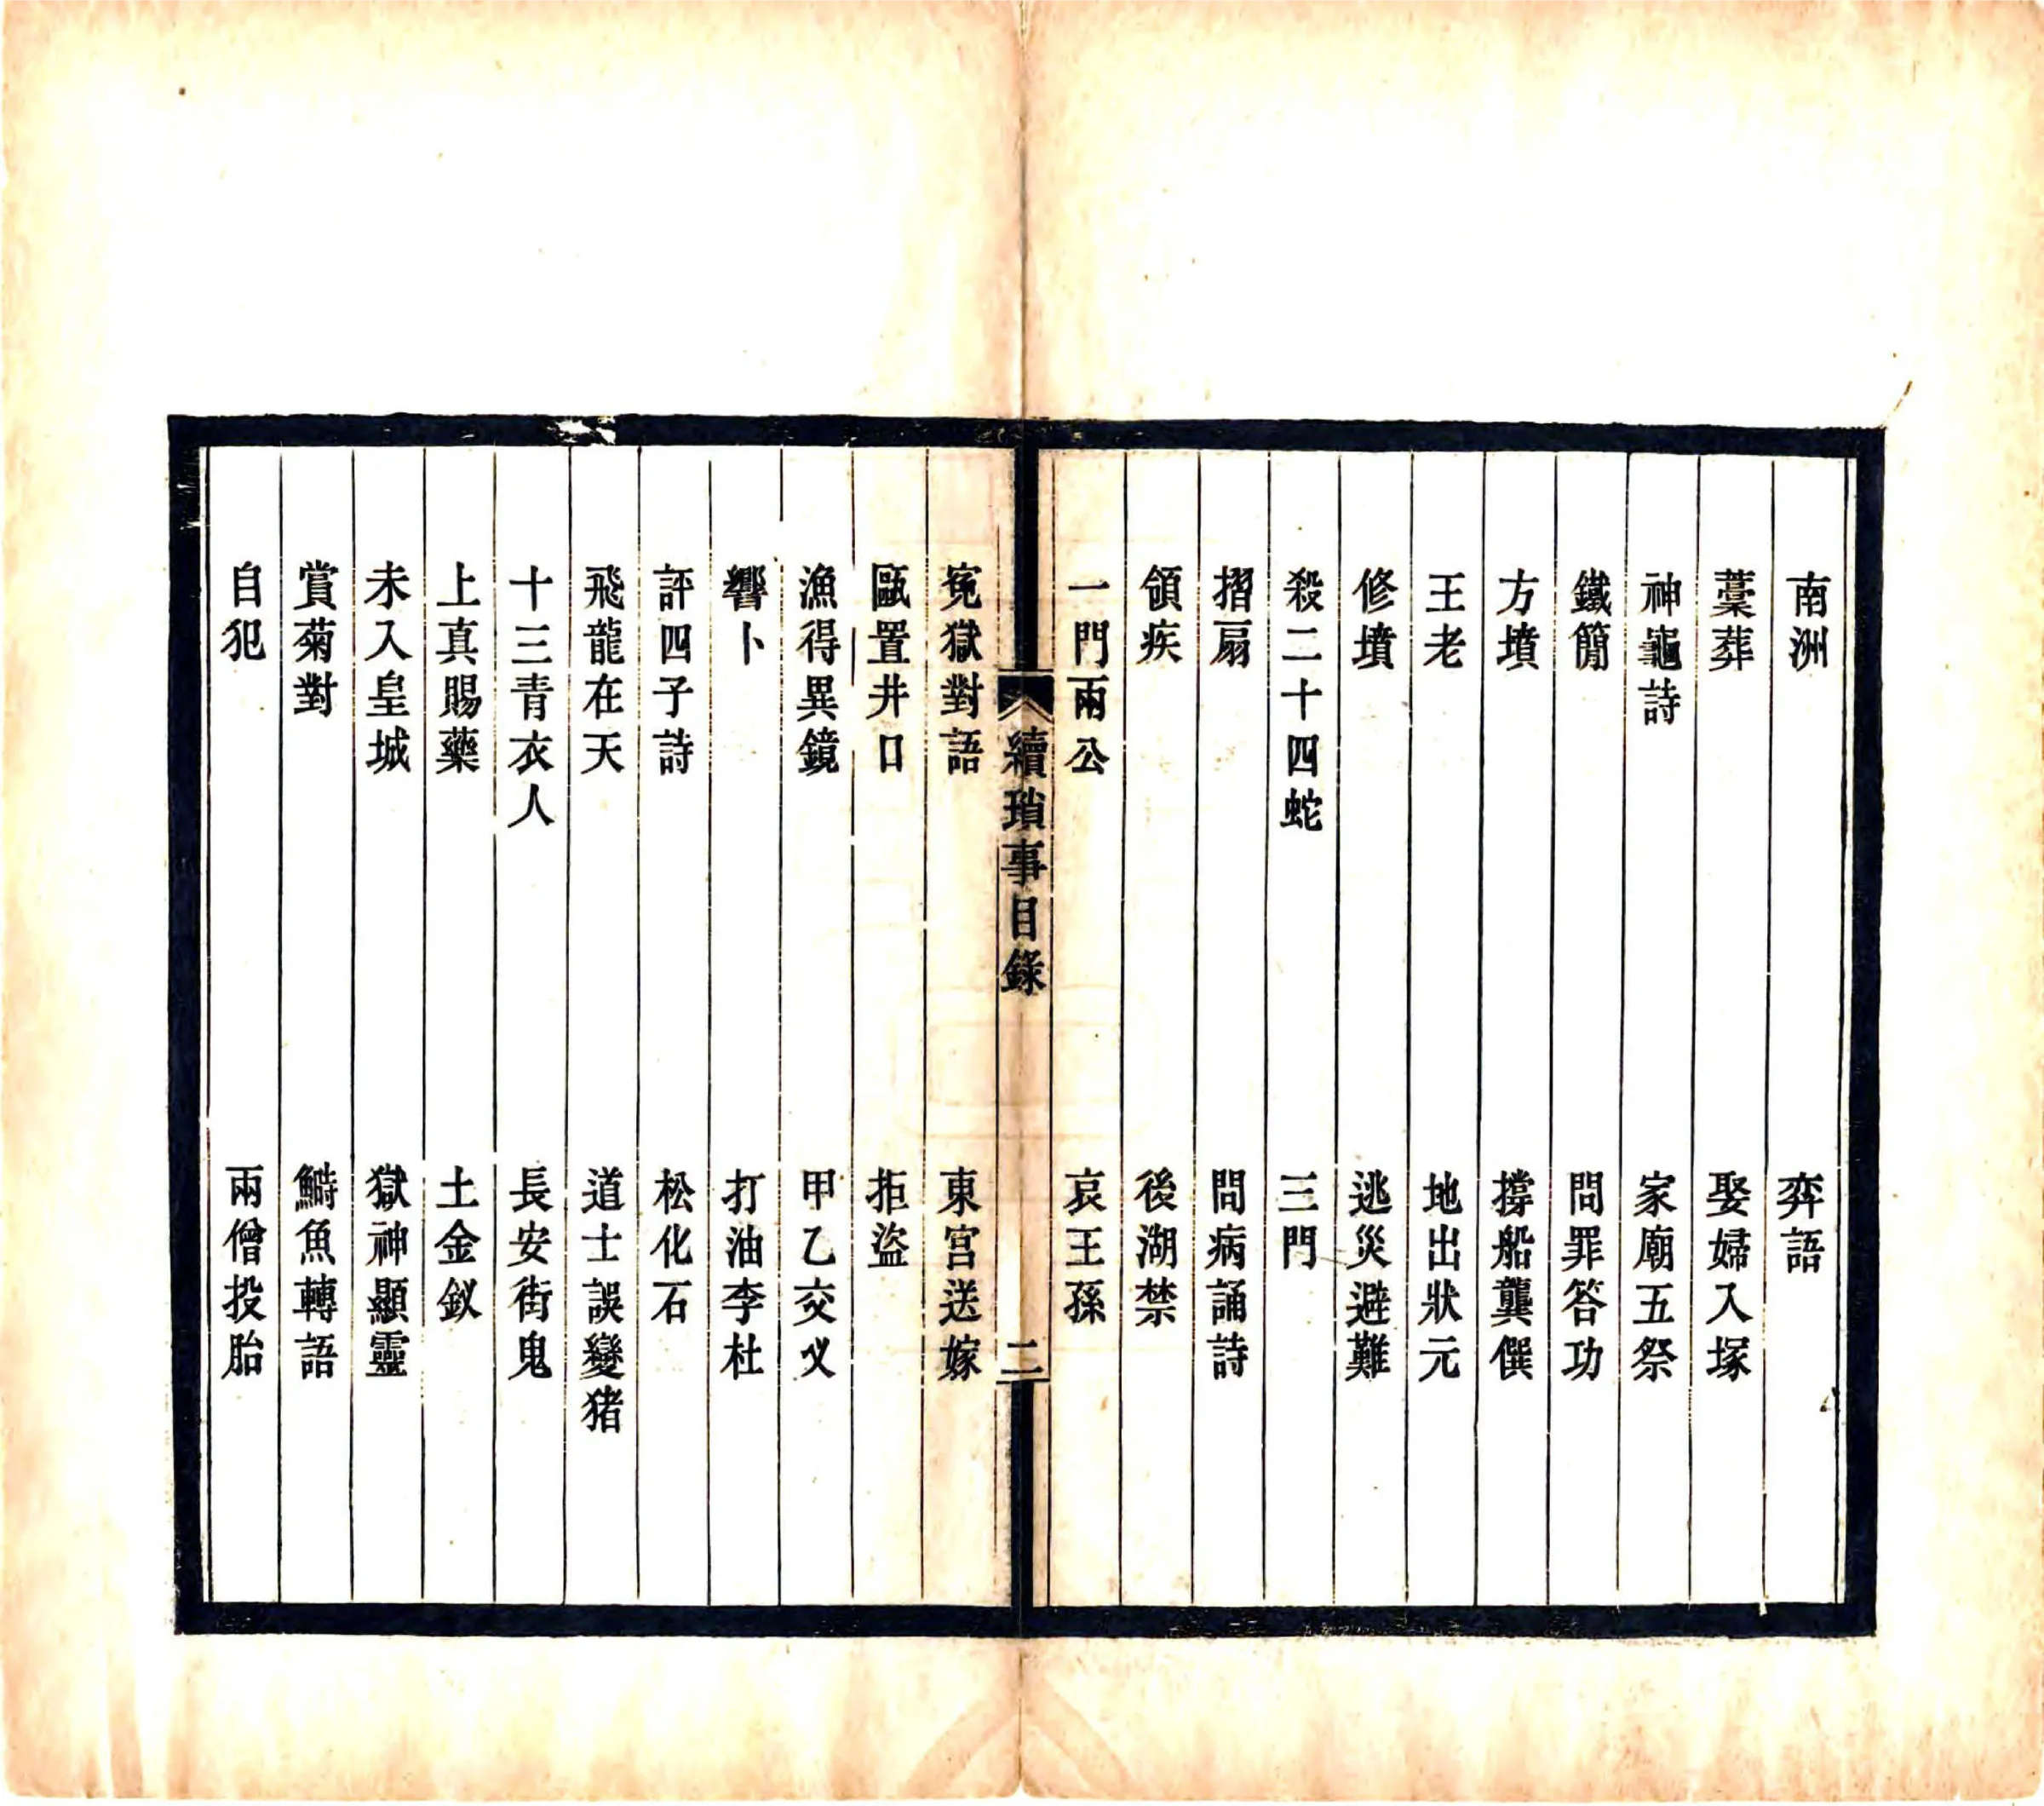 南洲　弈語
藁葬　娶婦入塚
神龜詩　家廟五祭
鐵簡　問罪答功
方墳　撐船龔僎
王老　地出狀元
修墳　逃災避難
殺二十四蛇　三門
摺扇　問病誦詩
領疾　後湖禁
一門兩公　哀王孫
續瑣事目錄　二
冤獄對語　東宮送嫁
甌置井口　拒盜
漁得異鏡　甲乙交乂
響卜　打油李杜
評四子詩　松化石
飛龍在天　道士誤變猪
十三青衣人　長安街鬼
上真賜藥　土金釵
未入皇城　獄神顯靈
賞菊對　鰣魚轉語
自犯　兩僧投胎